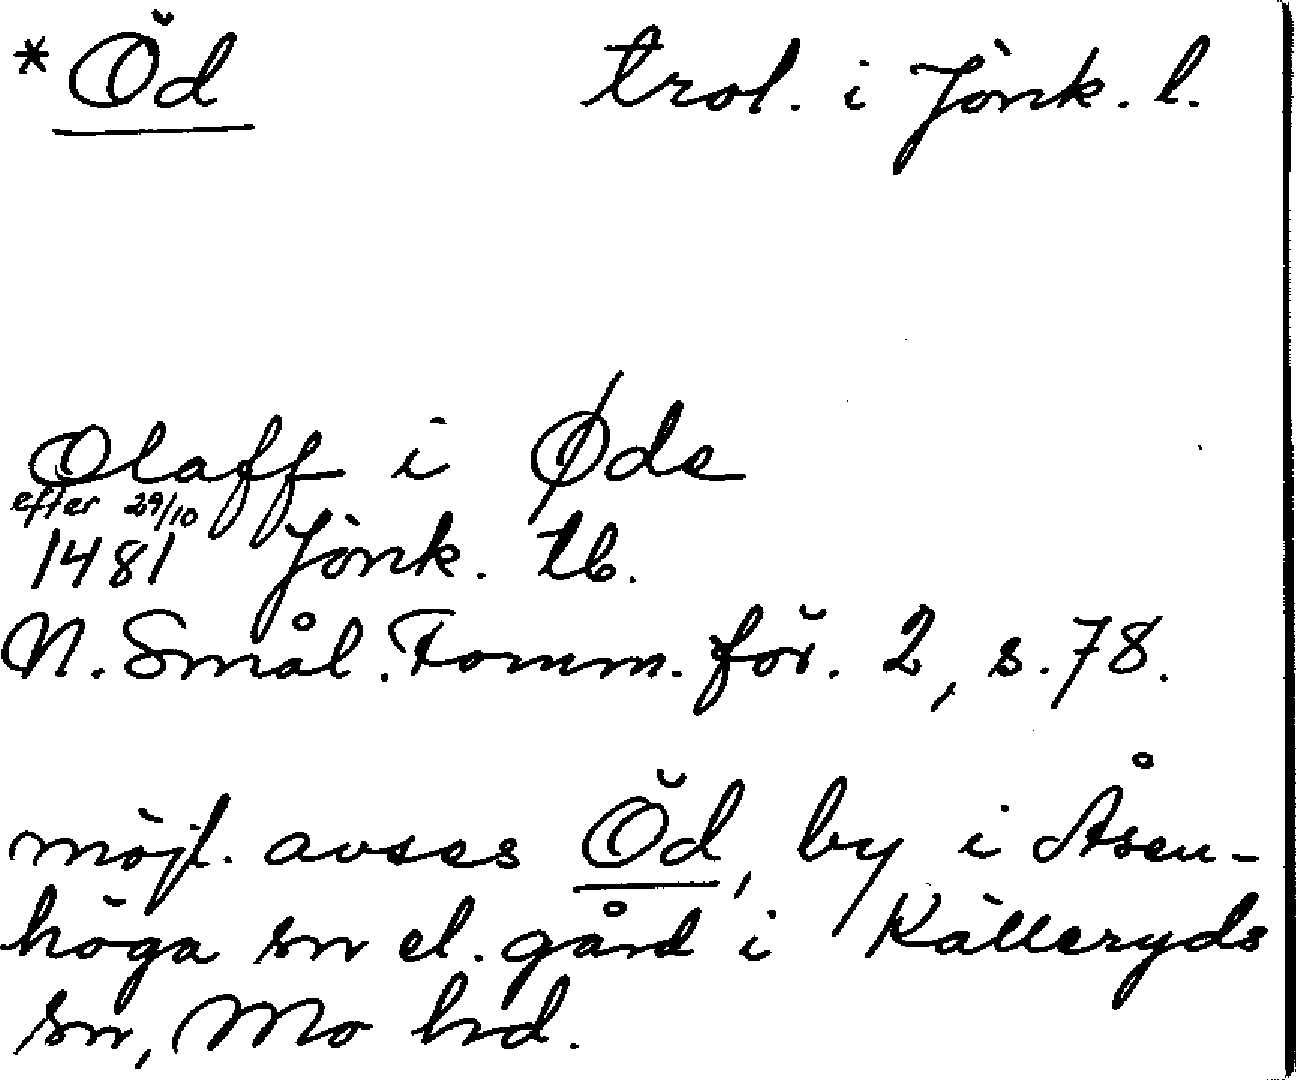 *Öd trol. i Jönk. l.
Olaff i Øde
efter 29/10
1481 Jönk. tb.
N. Smål. Fornm. för. 2, s. 78.
möjl. avses Öd, by i Åsen-
höga sn el. gård i Källeryds
sn, Mo hd.